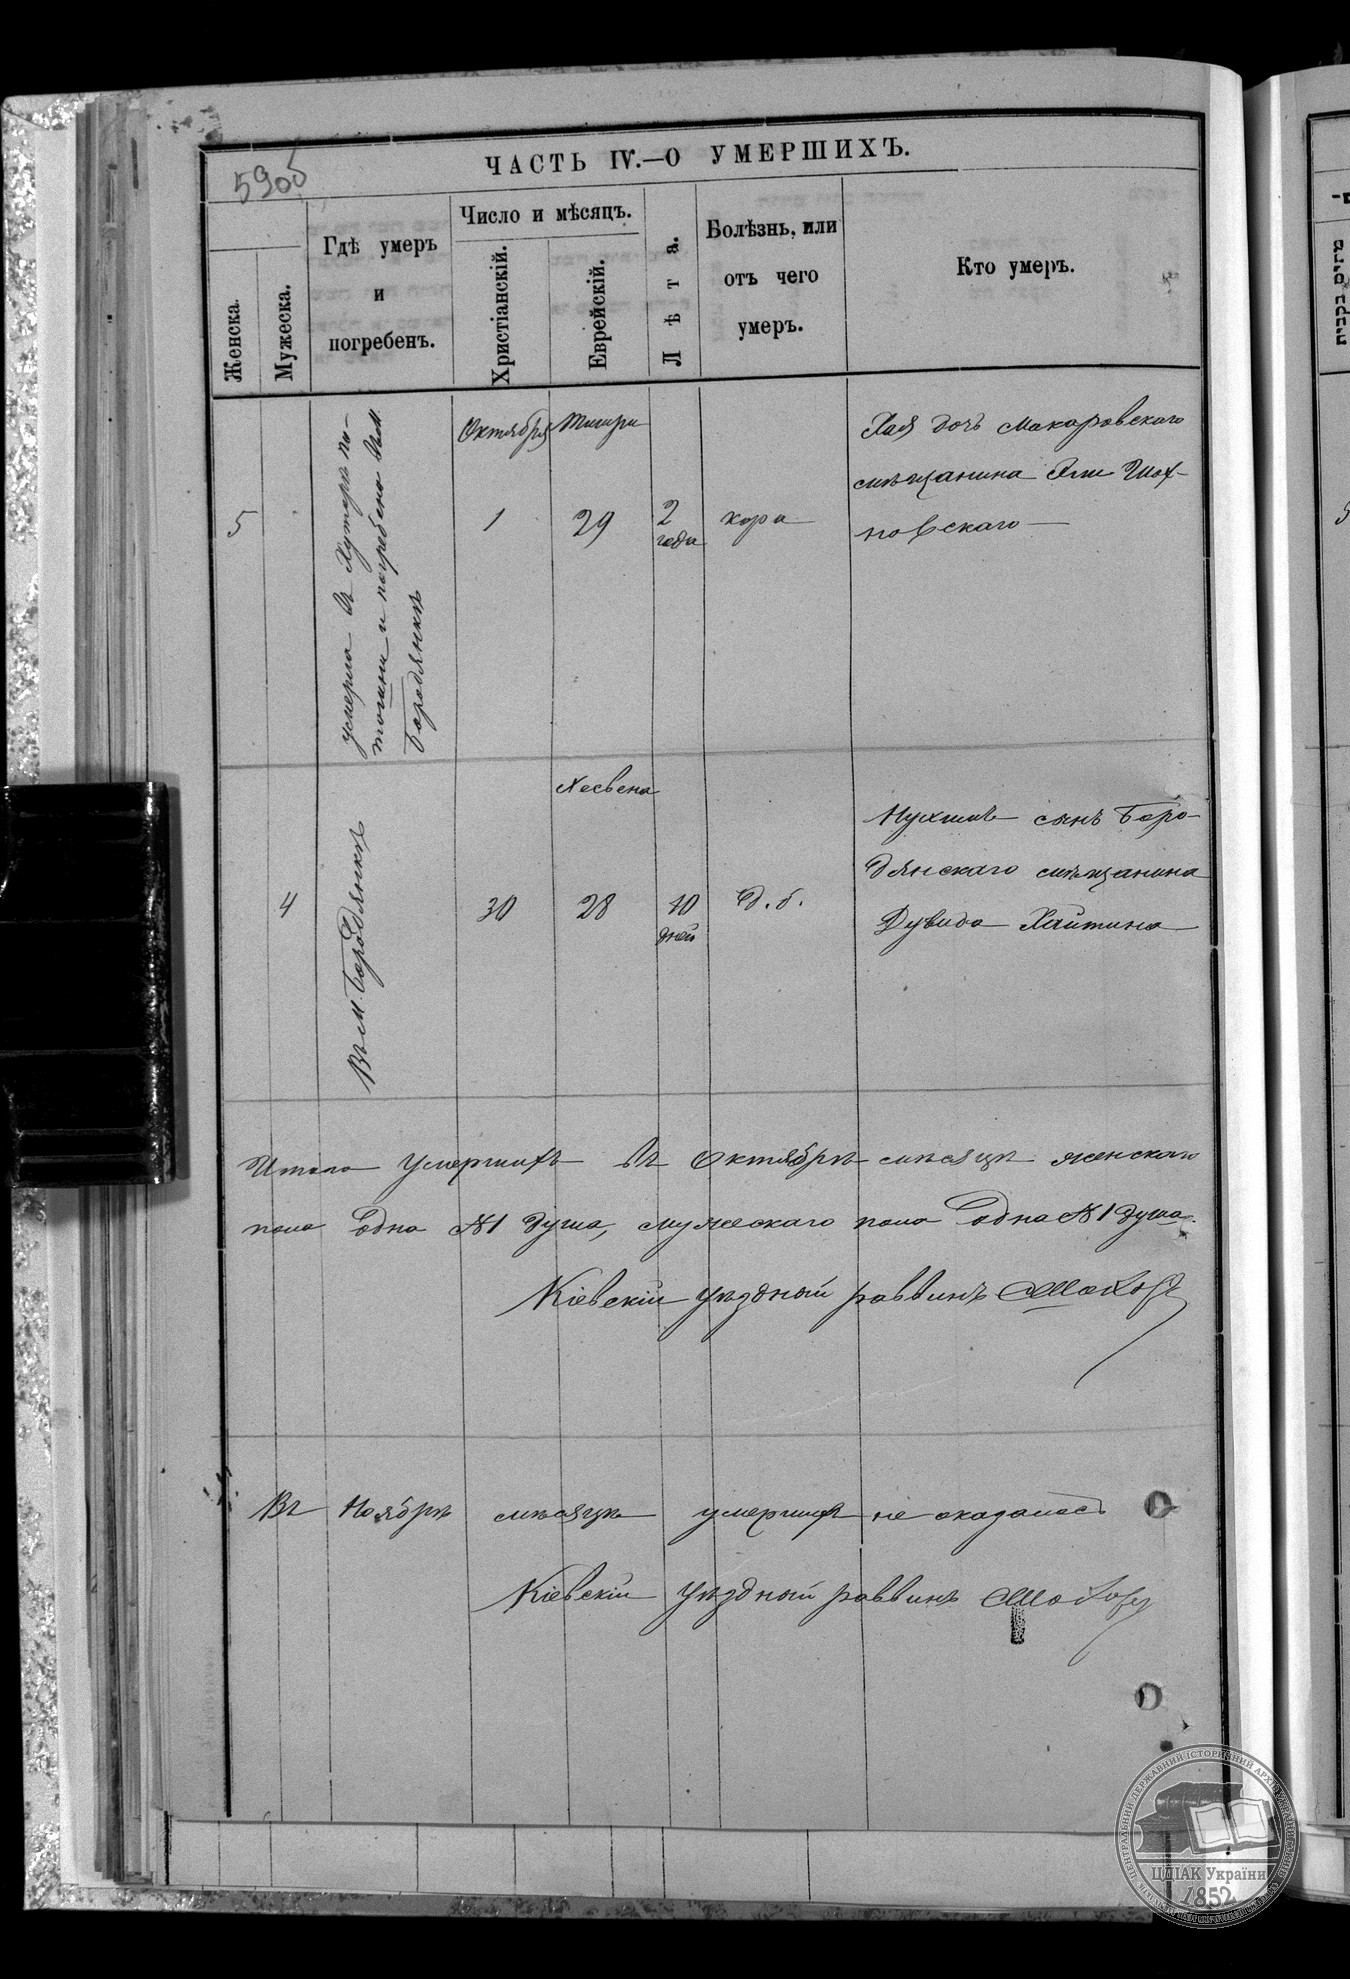 5905
ЧАСТЬ IV.—О УМЕРШИХЪ.
Женска.
Мужеска.
Гдѣ умеръ
и
погребенъ.
Число и мѣсяцъ.
Христіанскій.
Еврейскій.
Лѣта.
Болѣзнь, или
отъ чего
умеръ.
Кто умеръ.
5
умерла въ Хуторѣ по-
и погребена въ м.
Бородянкѣ
Октября
1
Тишри
29
2
года
кори
Хая дочь Макаровскаго
мѣщанина
новскаго
4
Въ м. Бородянкѣ
30
Хесвена
28
10
дней
Д. б.
Нухимъ сынъ Боро-
дянскаго мѣщанина
Дувида Хаитина
Итого Умершихъ въ Октябрѣ мѣсяцѣ женскаго
пола Одна №1 душа, мужескаго пола Одна №1 душа.
Кіевскій Уѣздный раввинъ
Въ Ноябрѣ мѣсяцѣ умершихъ не оказалось
Кіевскій Уѣздный раввинъ
ЦДІАК України
1852